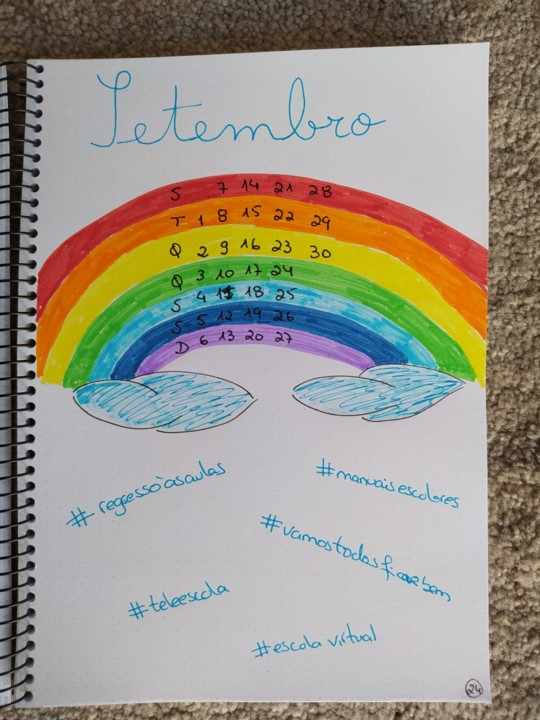 Setembro
S 7 14 21 28
T 1 8 15 22 29
Q 2 9 16 23 30
Q 3 10 17 24
S 4 11 18 25
S 5 12 19 26
D 6 13 20 27
#regressoàsaulas
#manuaisescolares
#vamostodosficarbem
#teleescola
#escola virtual
24